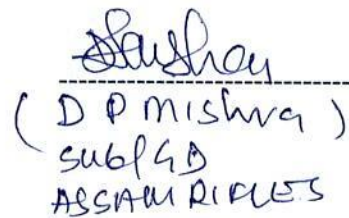 ( D P Mishra )
Sub/GD
ASSAM RIFLES